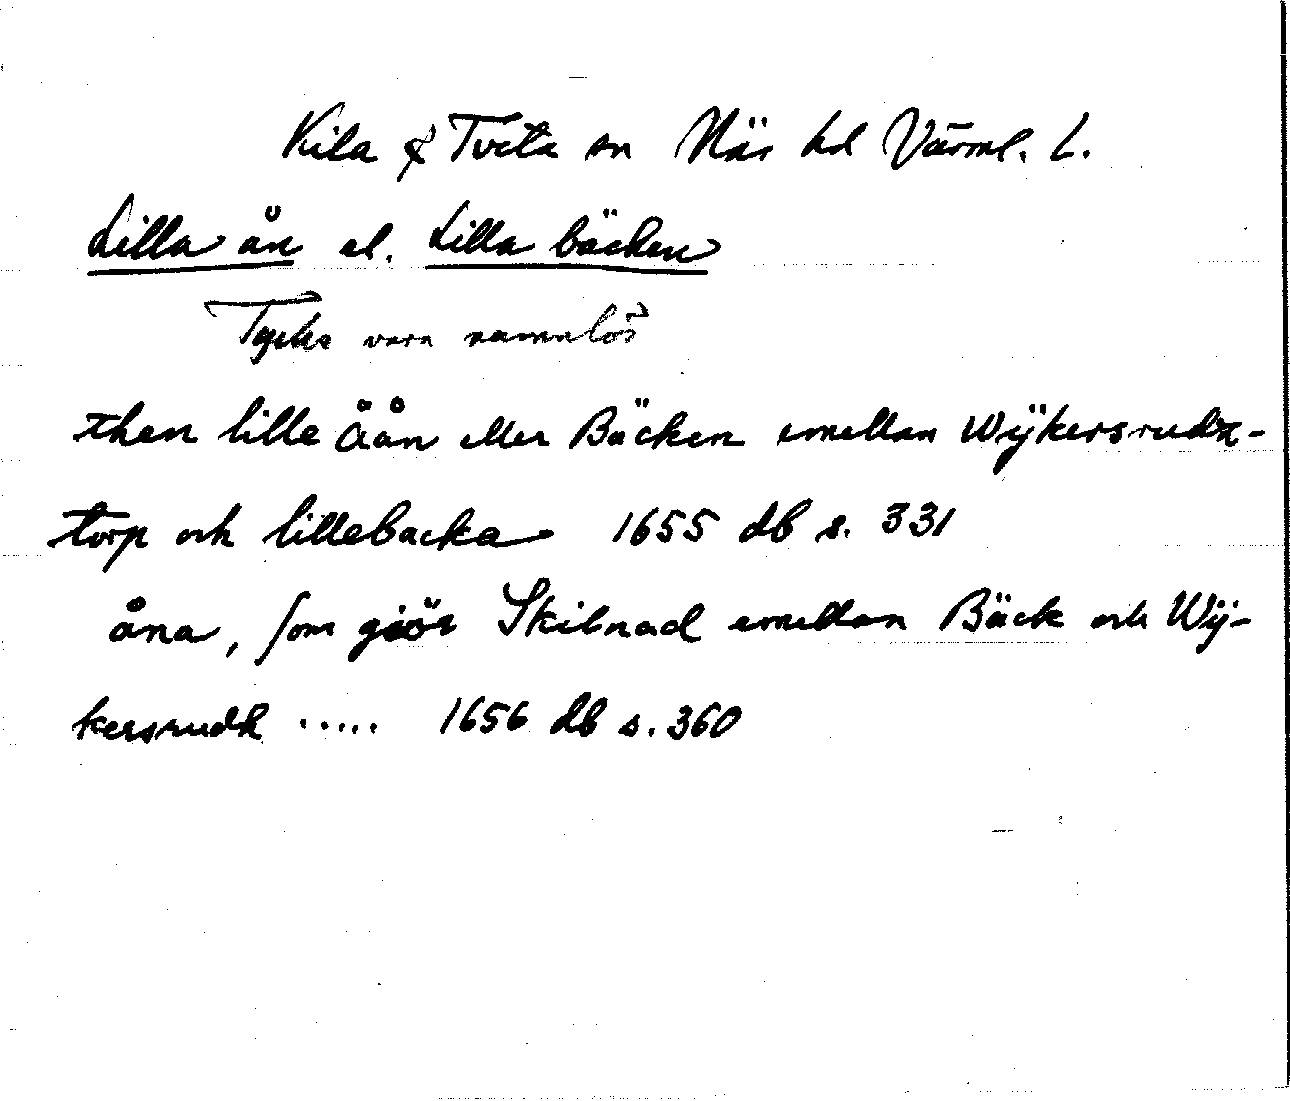 Kila & Tveta sn När hd Värml. L.
Lilla ån el. Lilla bäcken
Tycks vara namnlös
then lille Åån eller Bäcken emellan Wÿkersrudz-
torp och lillebacka 1655 db s. 331
åna, som giör Skilnad emellan Bäck och Wÿ-
kersrudh ..... 1656 db s. 360